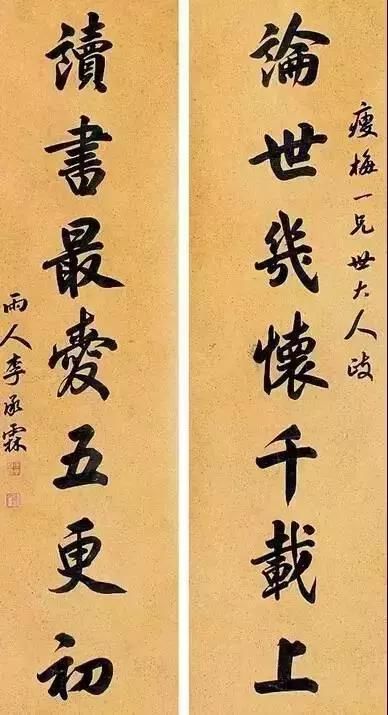 瘦梅一兄世大人政
論世幾懷千載上
讀書最愛五更初
雨人李承霖